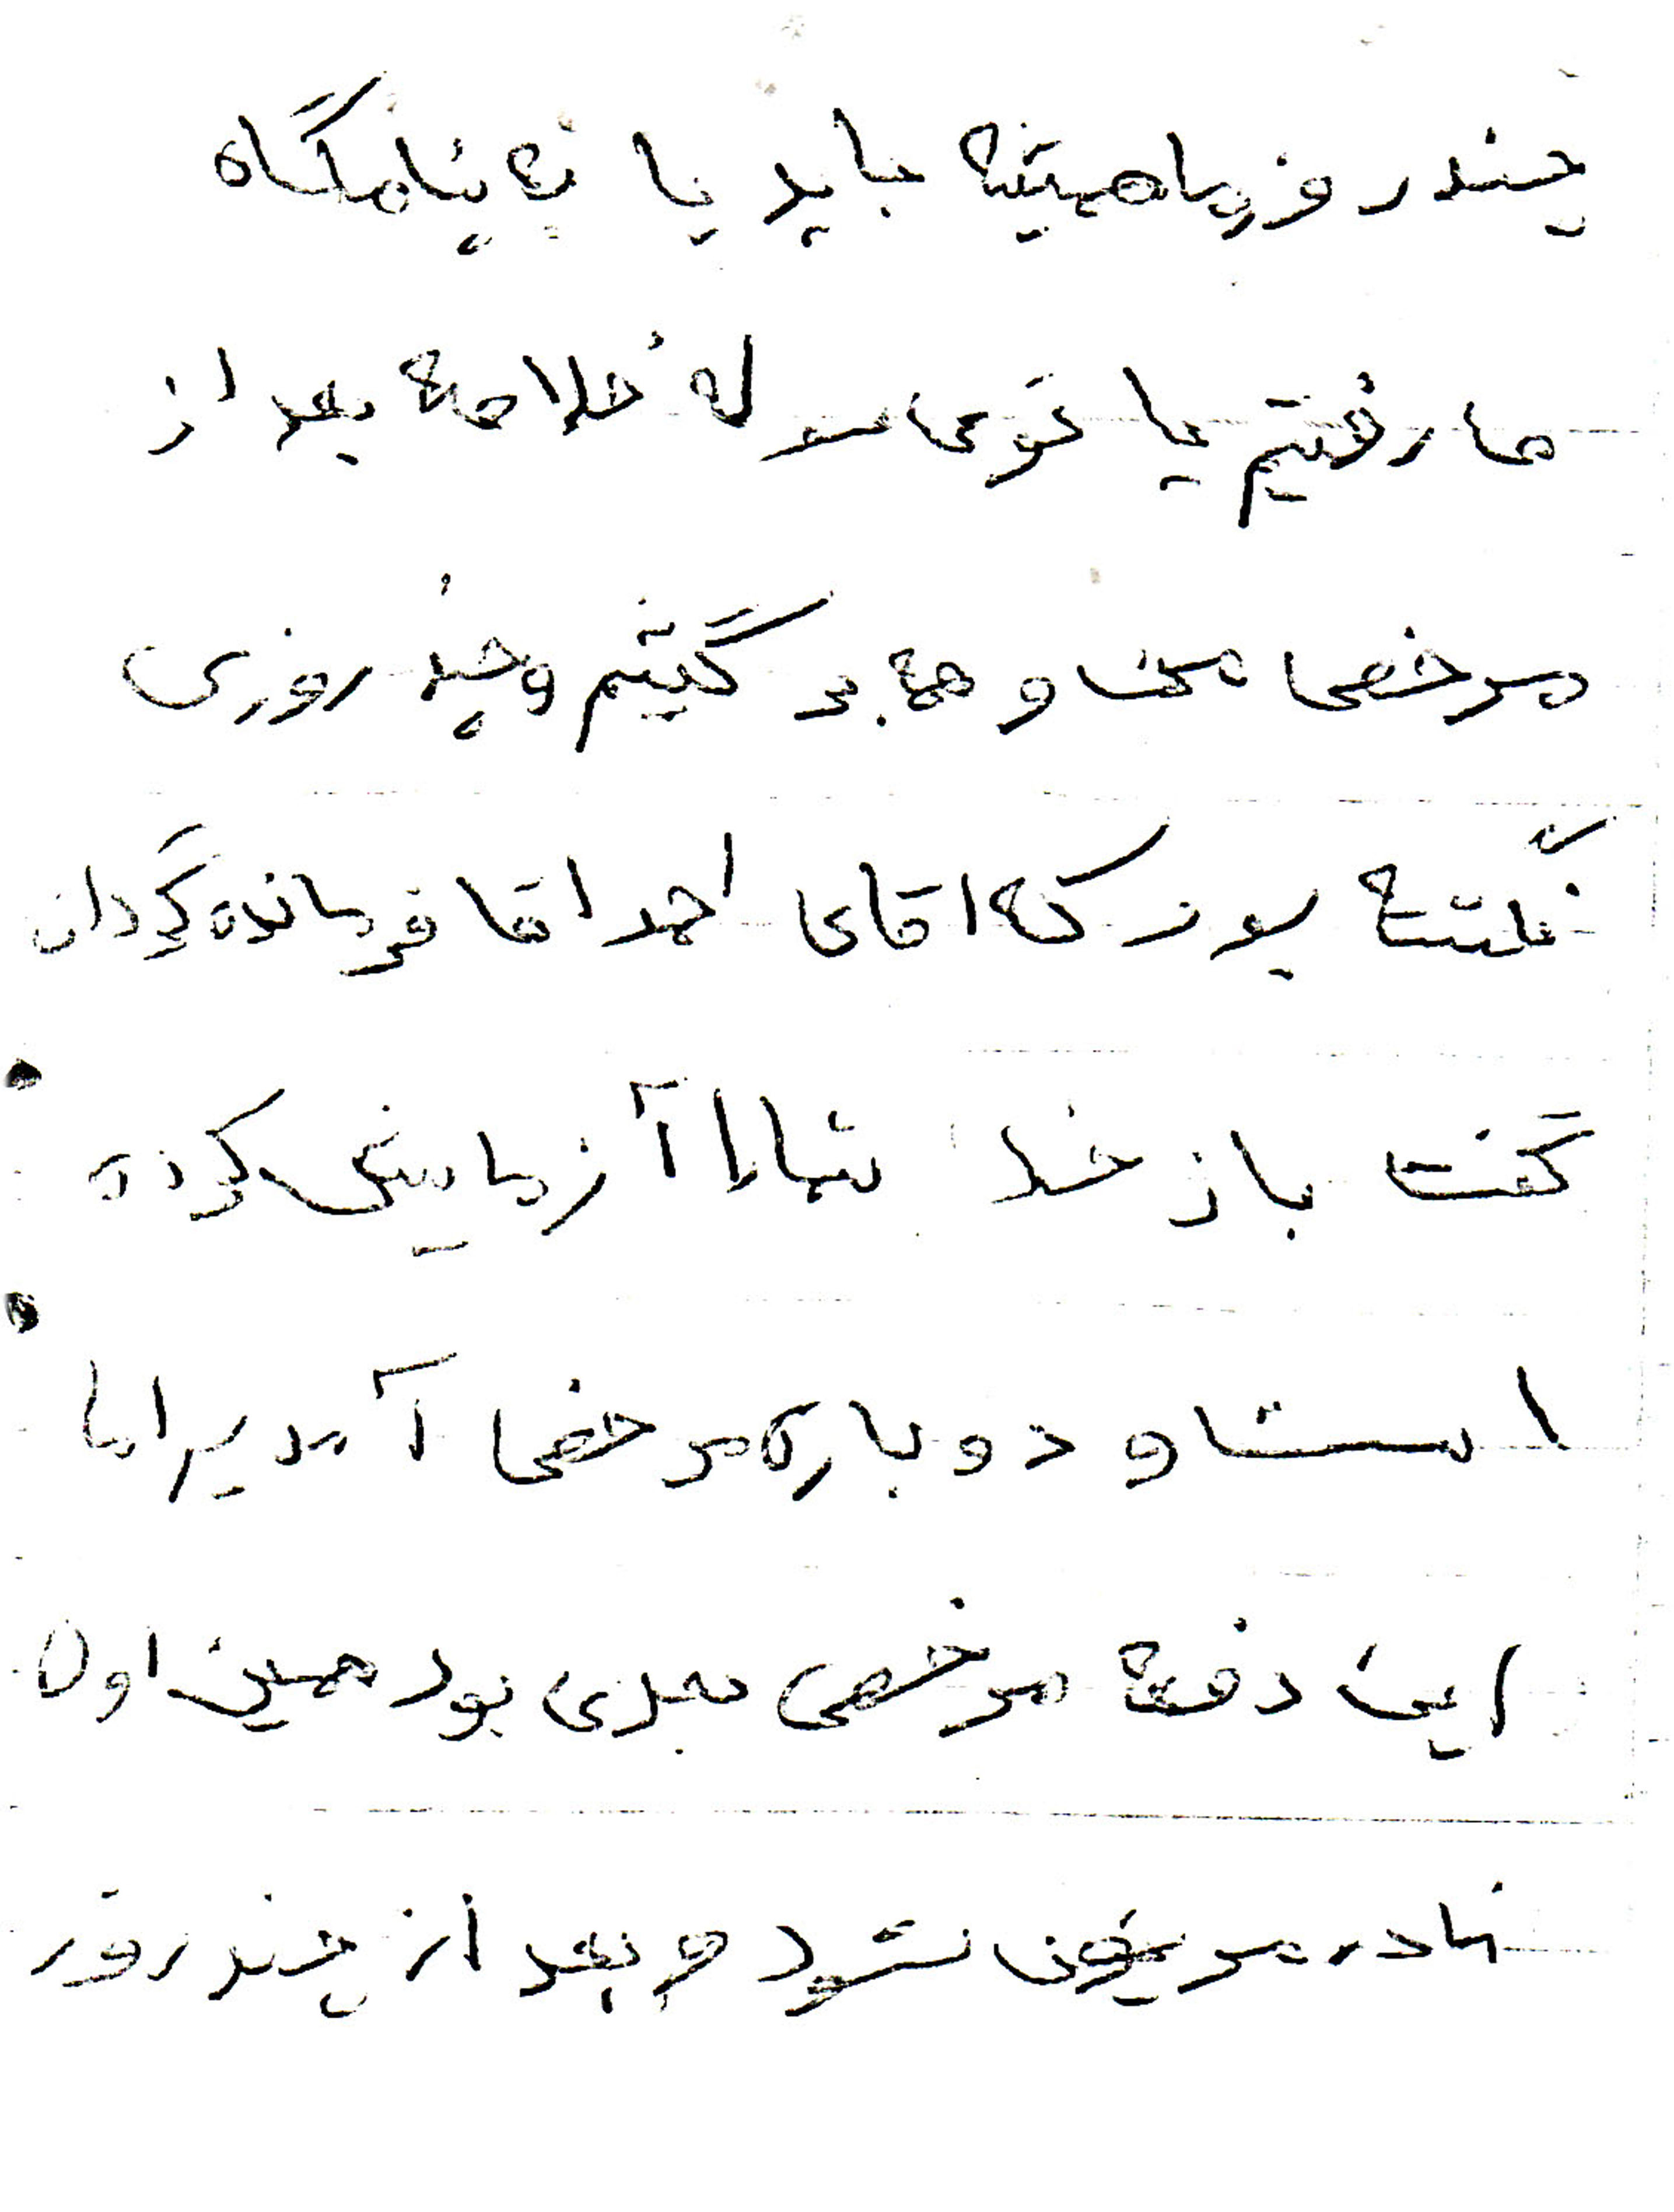 چند روز ما همیشه باید یا به پناهگاه
ما رفتیم یا توی سوله خلاصه بعد از
مرخصی من و همه بر گشتیم و چند روزی
نگذشته بود که اقای احمد اقا فرمانده گردان
گفت باز خدا شما را آزمایش کرده
است و دوباره مرخصی آمدیم اما
این دفعه مرخصی بعدی بود همین اول
نماز مریض شود و بعد از چند روز